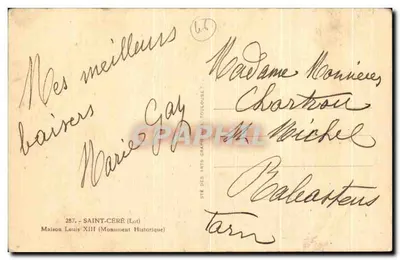 Mes meilleurs
baisers
Marie Gay
46
Madame Monnieres
Chartrou
St Michel
Rabastens
Tarn
287. - SAINT-CÉRÉ (Lot)
Maison Louis XIII (Monument Historique)